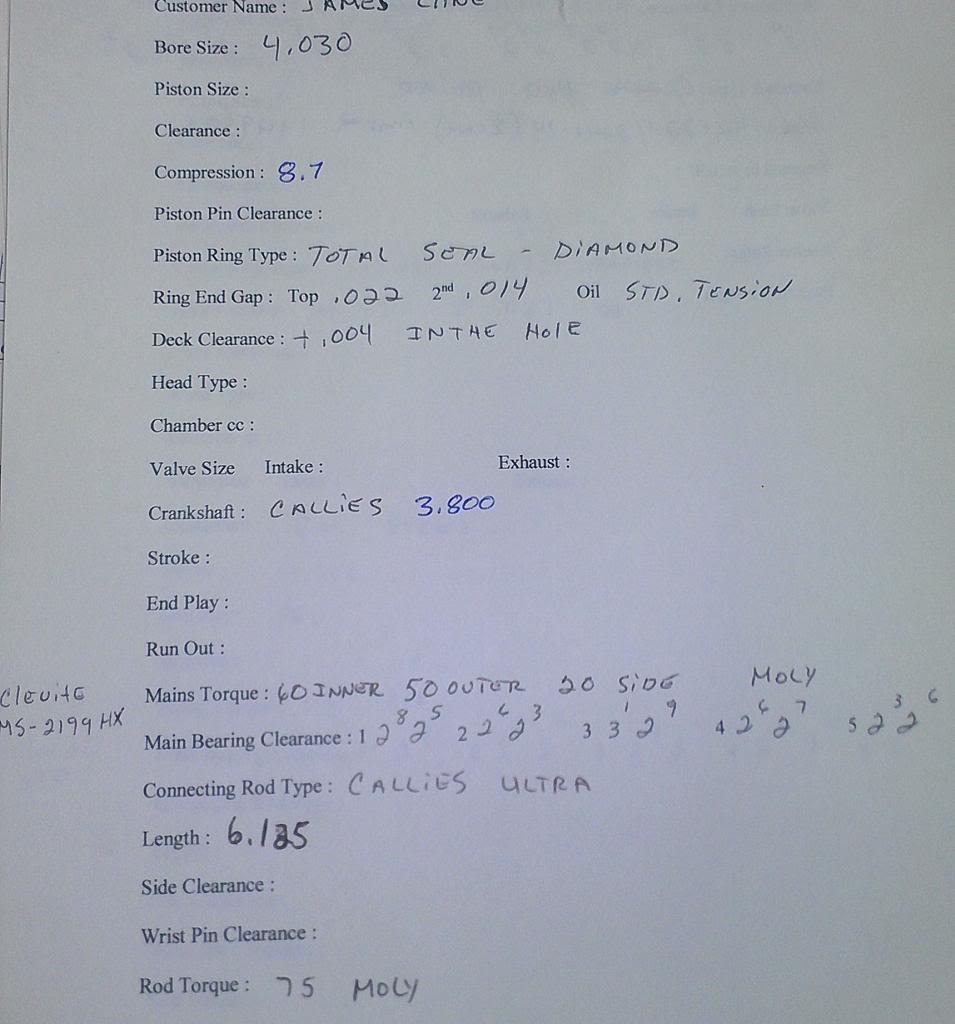 Customer Name : JAMES
Bore Size : 4.030
Piston Size :
Clearance :
Compression : 8.7
Piston Pin Clearance :
Piston Ring Type : TOTAL SEAL - DIAMOND
Ring End Gap : Top .022 2nd .014 Oil STD. TENSION
Deck Clearance : + .004 IN THE HOLE
Head Type :
Chamber cc :
Valve Size Intake : Exhaust :
Crankshaft : CALLIES 3.800
Stroke :
End Play :
Run Out :
Clevite
MS-2199 HX
Mains Torque : 60 INNER 50 OUTER 20 SIDE MOLY
Main Bearing Clearance : 1 2⁸ 2⁵ 2 2⁶ 2³ 3 3¹ 2⁹ 4 2⁶ 2⁷ 5 2³ 2⁶
Connecting Rod Type : CALLIES ULTRA
Length : 6.125
Side Clearance :
Wrist Pin Clearance :
Rod Torque : 75 MOLY